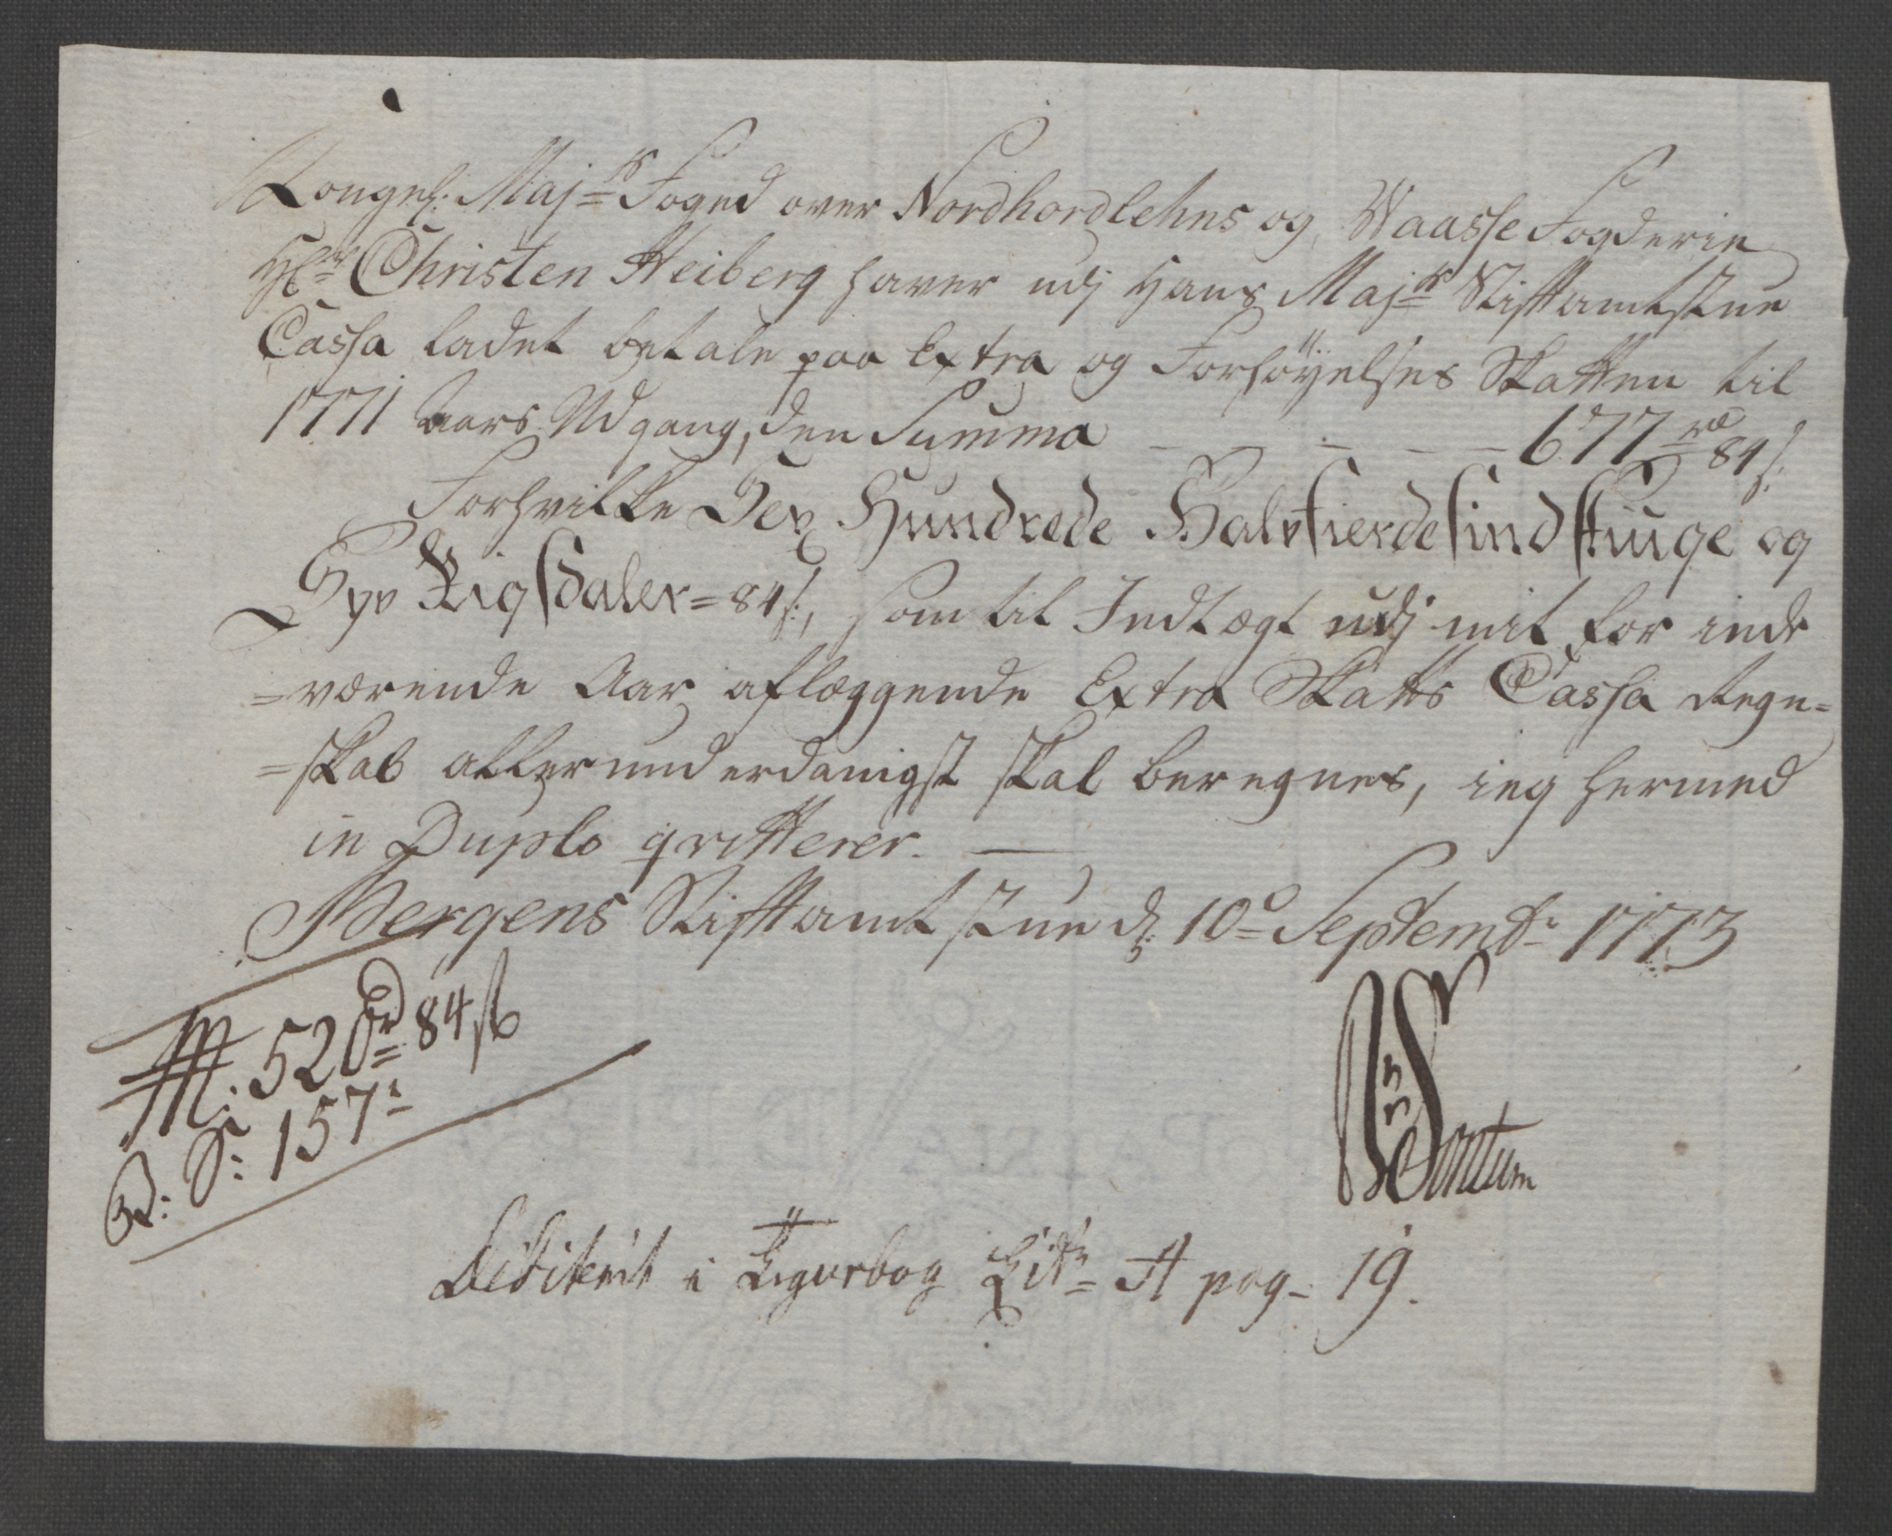 Kongel: Maj:ts Foged over Nordhordlehns og Waasse Fogderie
Hr: Christen Heiberg haver udj Hans Maj:ts Stiftamtstue
Cassa ladet betale paa Extra og Forhøyelses Skatten til
1771 Aars Udgang, den Summa — — — — 677 rd 84 s:
Forhvilke Sex Hundrede Halvfierdesindstiuge og
Syv Rigsdaler = 84 s:, som til Indtægt udj mit for inde
=værende Aar aflæggende Extra Skatts Cassa Regn=
=skab allerunderdanigst skal beregnes, ieg hermed
in Duplo qvitterer. —
Bergens Stiftamtstue d: 10de Septembr: 1773
M: 520 rd 84 s
S: 157:
Sontum
Debiteret i Figurbog Litr: A pag- 19.